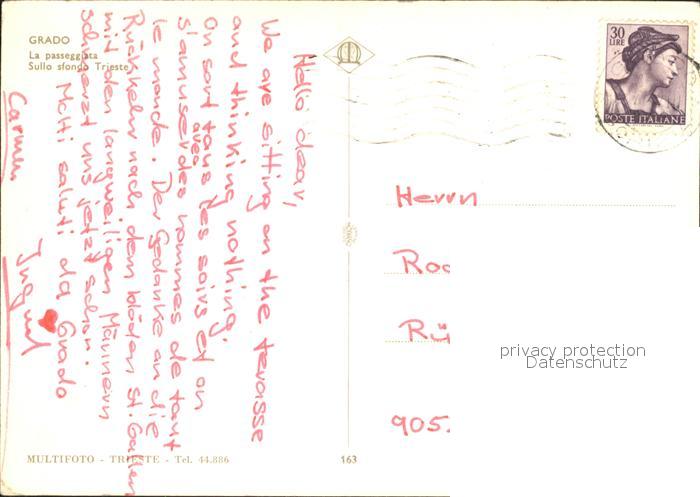 GRADO
La passeggiata
Sullo sfondo Trieste
Hello dear,
We are sitting on the terasse
and thinking nothing.
On sort tous les soirs et on
s'amuse avec des hommes de tout
le monde. Der Gedanke an die
Rückkehr nach dem blöden St. Gallen
mit den langweiligen Männern
schmerzt uns jetzt schon.
Molti saluti da Grado
Carmen
MULTIFOTO - TRIESTE - Tel. 44.886
163
30
LIRE
POSTE ITALIANE
Herrn
Roc
Rü
905.
privacy protection
Datenschutz